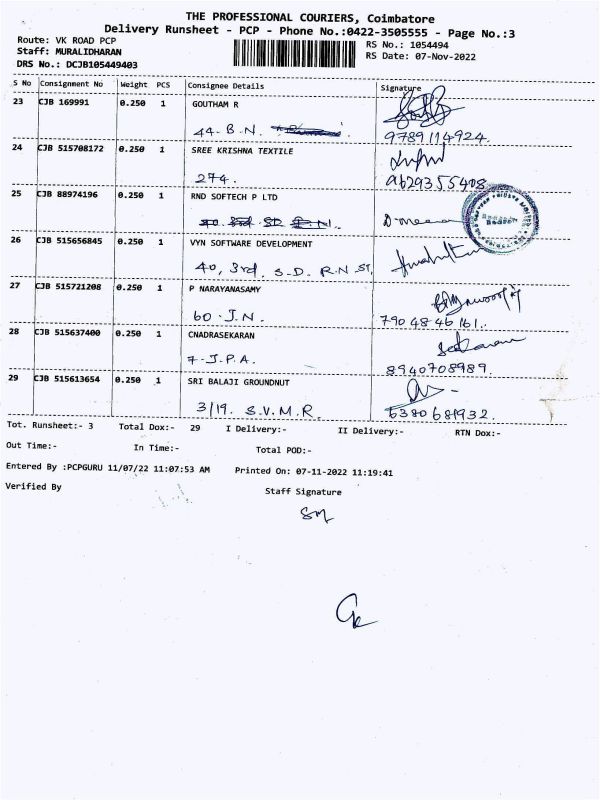 THE PROFESSIONAL COURIERS, Coimbatore
Delivery Runsheet - PCP - Phone No.:0422-3505555 - Page No.:3
Route: VK ROAD PCP
RS No.: 1054494
Staff: MURALIDHARAN
RS Date: 07-Nov-2022
DRS No.: DCJB105449403
S No Consignment No Weight PCS Consignee Details Signature
23 CJB 169991 0.250 1 GOUTHAM R
44- B.N.
9789114924.
24 CJB 515708172 0.250 1 SREE KRISHNA TEXTILE
274.
9629355408
25 CJB 88974196 0.250 1 RND SOFTECH P LTD
D.meena
26 CJB 515656845 0.250 1 VYN SOFTWARE DEVELOPMENT
40, 3rd, S.D. R.N ST.
27 CJB 515721208 0.250 1 P NARAYANASAMY
60 - J.N.
790 48 46 161.
28 CJB 515637400 0.250 1 CNADRASEKARAN
7-J.P.A.
8940708989.
29 CJB 515613654 0.250 1 SRI BALAJI GROUNDNUT
3/19. S.V.M.R.
6380681932.
Tot. Runsheet:- 3 Total Dox:- 29 I Delivery:- II Delivery:- RTN Dox:-
Out Time:- In Time:- Total POD:-
Entered By :PCPGURU 11/07/22 11:07:53 AM Printed On: 07-11-2022 11:19:41
Verified By
Staff Signature